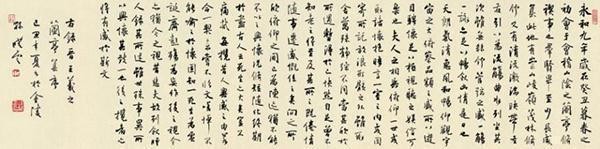 永和九年歲在癸丑暮春之
初會于會稽山陰之蘭亭脩
禊事也群賢畢至少長咸
集此地有崇山峻嶺茂林脩
竹又有清流激湍映帶左
右引以為流觴曲水列坐其
次雖無絲竹管弦之盛一觴
一詠亦足以暢敘幽情是日也
天朗氣清惠風和暢仰觀宇
宙之大俯察品類之盛所以遊
目騁懷足以極視聽之娛信可
樂也夫人之相與俯仰一世或
取諸懷抱悟言一室之內或因
寄所託放浪形骸之外雖趣
舍萬殊靜躁不同當其欣於
所遇暫得於己快然自足不
知老之將至及其所之既倦情
隨事遷感慨係之矣向之所
欣俛仰之間已為陳迹猶不能
不以之興懷況脩短隨化終期
於盡古人云死生亦大矣豈不
痛哉每攬昔人興感之由若
合一契未嘗不臨文嗟悼不能
喻之於懷固知一死生為虛
誕齊彭殤為妄作後之視今
亦猶今之視昔悲夫故列敘時
人錄其所述雖世殊事異所
以興懷其致一也後之攬者
亦將有感於斯文
右錄晉王羲之
蘭亭集序
己丑年夏於金陵
孫曉雲